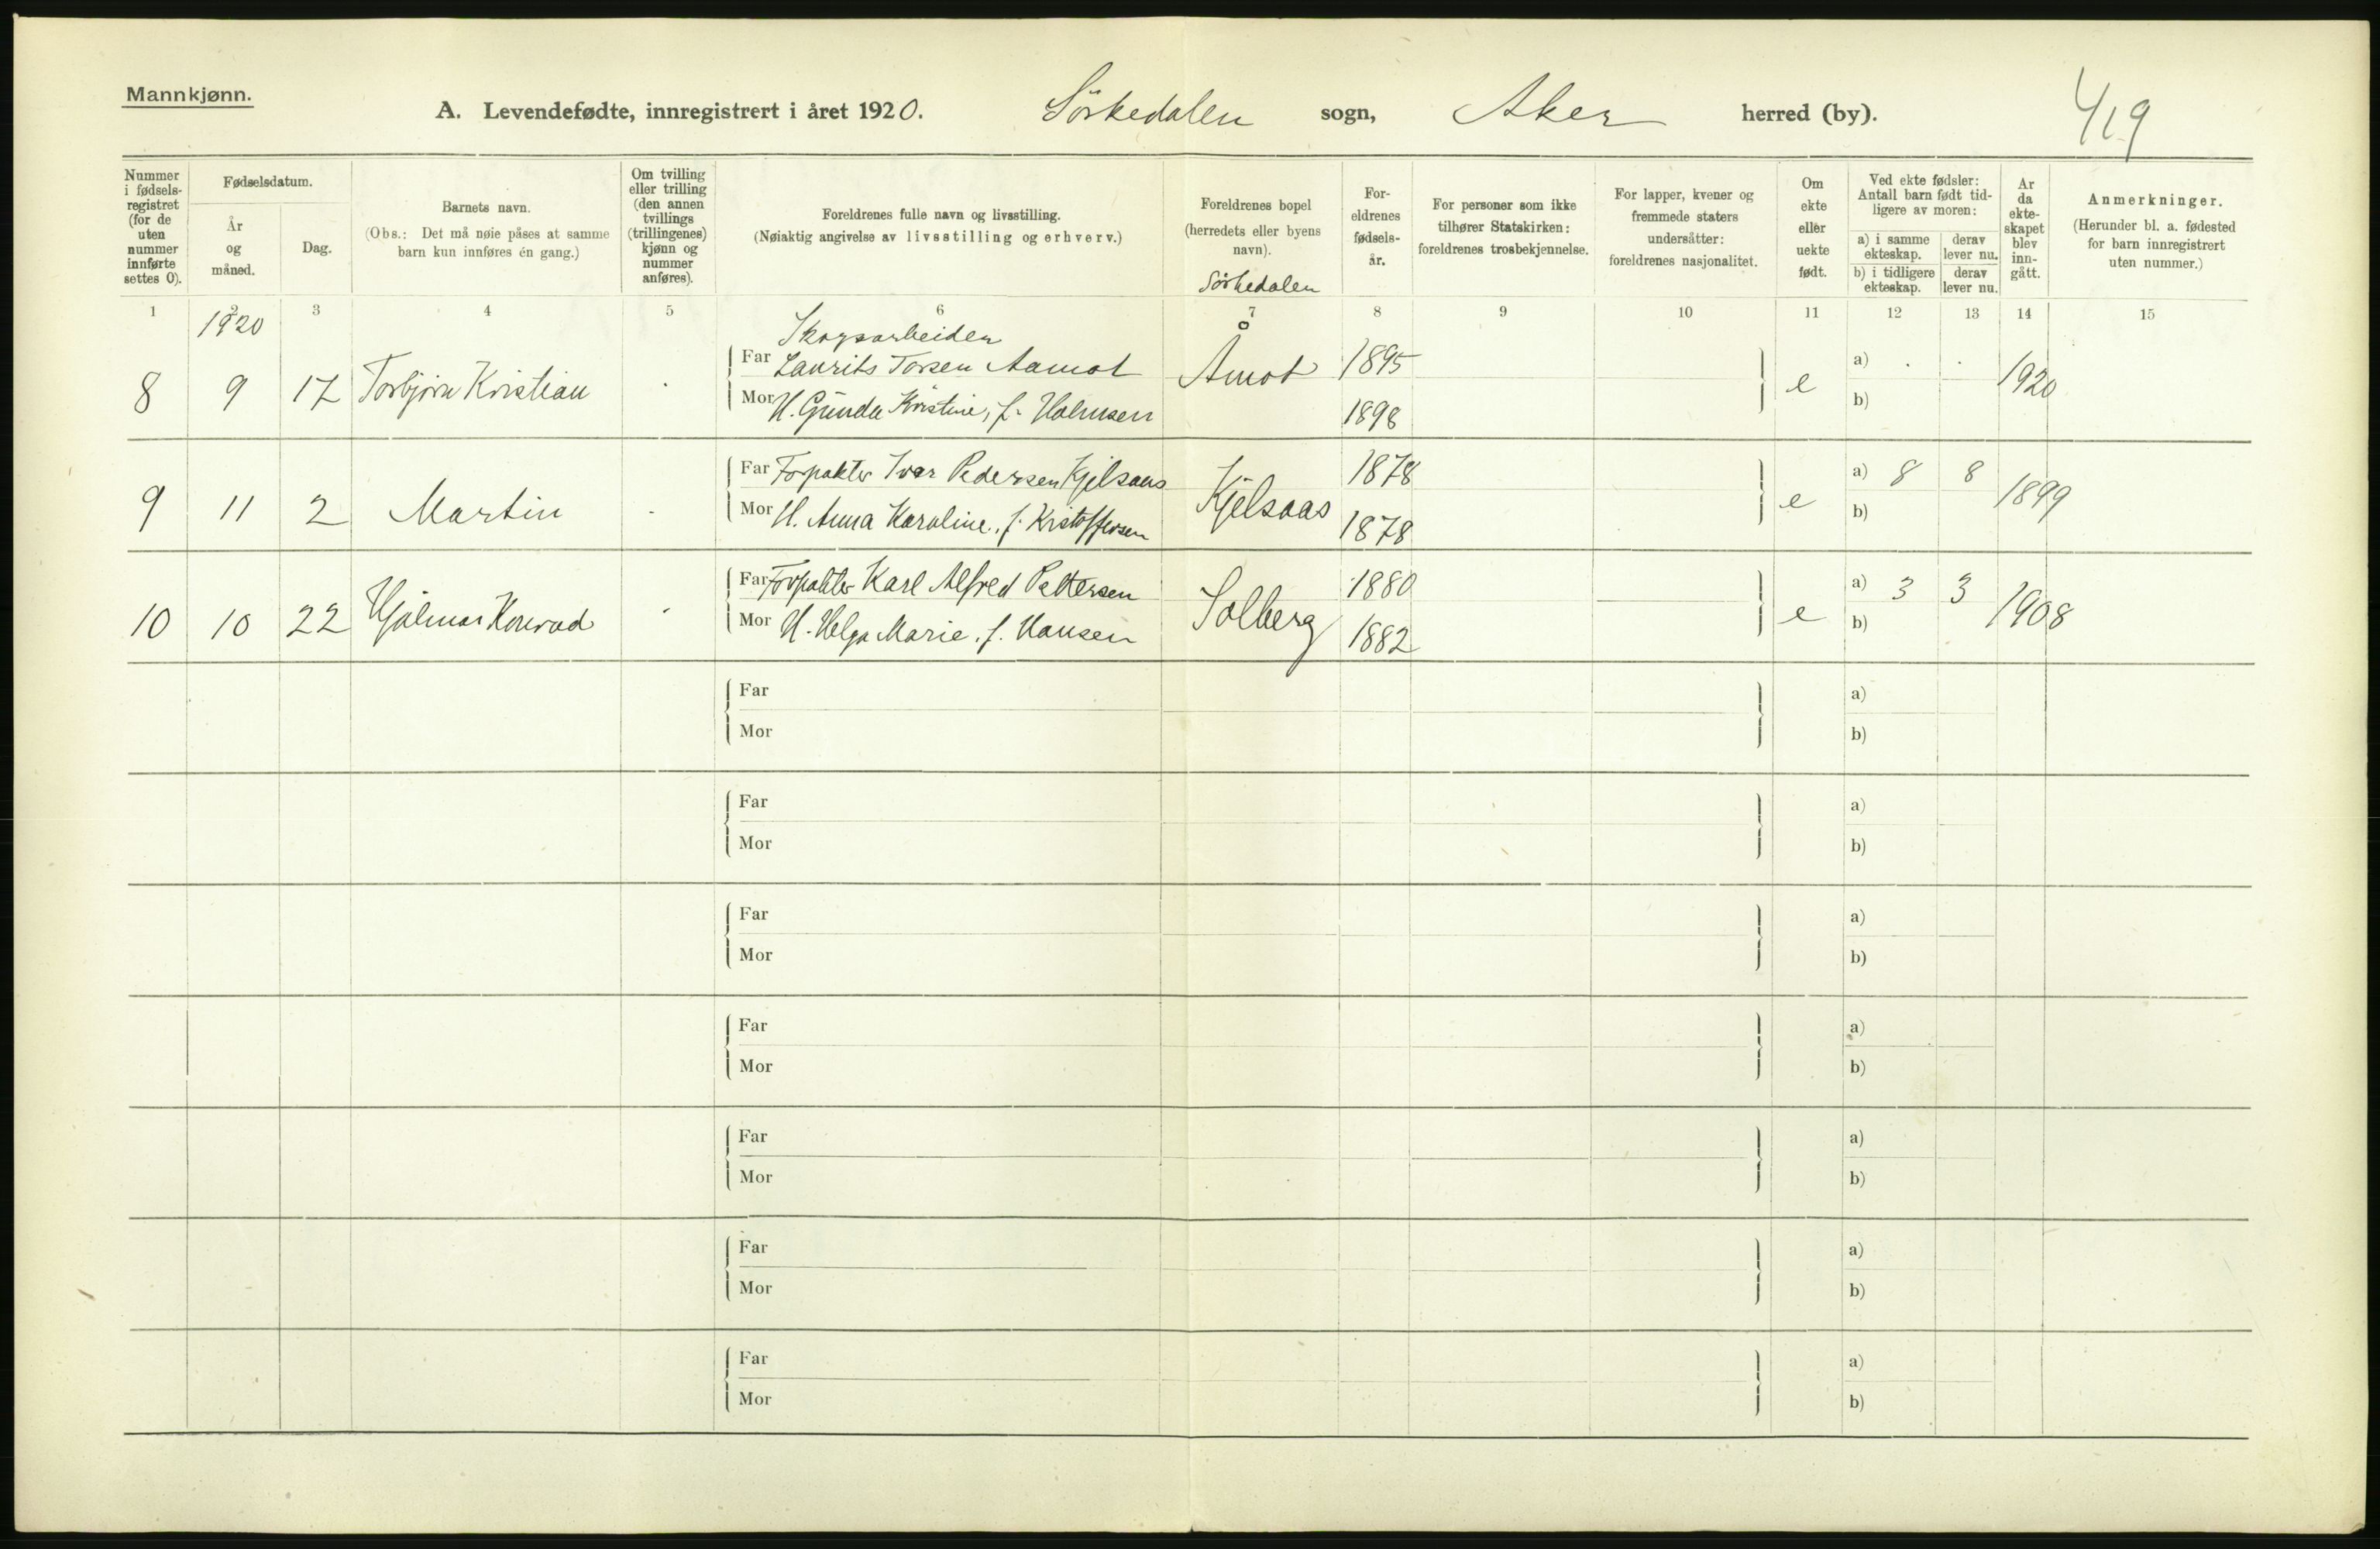 Mannkjønn.
A. Levendefødte, innregistrert i året 1920. Sörkedalen sogn, Aker herred (by). 419
Nummer i fødsels-registret (for de uten nummer innførte settes 0).
Fødselsdatum.
År og måned.
Dag.
Barnets navn.
(Obs.: Det må nøie påses at samme barn kun innføres én gang.)
Om tvilling eller trilling (den annen tvillings (trillingenes) kjønn og nummer anføres).
Foreldrenes fulle navn og livsstilling.
(Nøiaktig angivelse av livsstilling og erhverv.)
Foreldrenes bopel (herredets eller byens navn).
Sörkedalen
For-eldrenes fødsels-år.
For personer som ikke tilhører Statskirken: foreldrenes trosbekjennelse.
For lapper, kvener og fremmede staters undersåtter: foreldrenes nasjonalitet.
Om ekte eller uekte født.
Ved ekte fødsler: Antall barn født tid-ligere av moren:
a) i samme ekteskap. derav lever nu.
b) i tidligere ekteskap. derav lever nu.
År da ekte-skapet blev inn-gått.
Anmerkninger.
(Herunder bl. a. fødested for barn innregistrert uten nummer.)
1 2 3 4 5 6 7 8 9 10 11 12 13 14 15
1920
Skogsarbeider
8 9 17 Torbjörn Kristian Far Laurits Torsen Aamot Åmot 1895 e a) 1920
Mor H. Gunda Kristine, f. Halmsen 1898 b)
9 11 2 Martin Far Forpakter Ivar Pedersen Kjelsaas Kjelsaas 1878 e a) 8 8 1899
Mor H. Anna Karoline, f. Kristoffersen 1878 b)
10 10 22 Hjalmar Konrad Far Forpakter Karl Alfred Pettersen Solberg 1880 e a) 3 3 1908
Mor H. Helga Marie, f. Hansen 1882 b)
Far a)
Mor b)
Far a)
Mor b)
Far a)
Mor b)
Far a)
Mor b)
Far a)
Mor b)
Far a)
Mor b)
Far a)
Mor b)